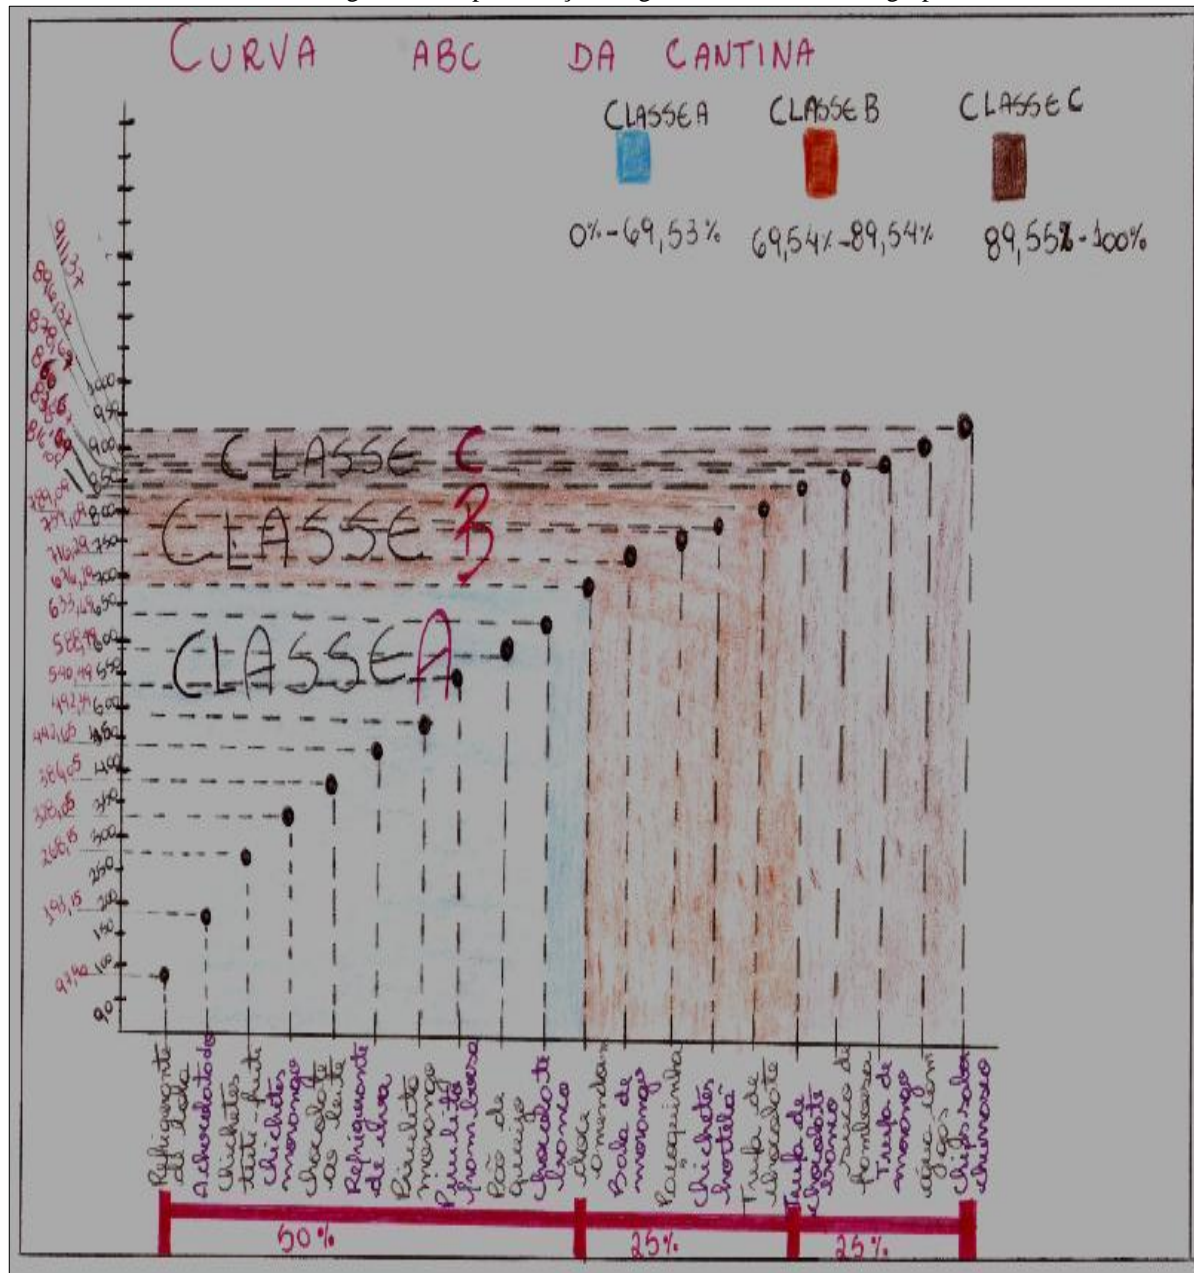 CURVA ABC DA CANTINA
CLASSE A CLASSE B CLASSE C
0%-69,53% 69,54%-89,54% 89,55%-100%
911,37
896,37
878,67
816,09
789,09
759,09
716,29
676,29
633,49
588,49
540,49
492,49
442,65
384,05
328,05
268,15
193,15
97,40
1000
950
900
850
800
750
700
650
600
550
600
450
400
350
300
250
200
150
100
CLASSE C
CLASSE B
CLASSE A
Refrigerante de
Achocolatado
Chichetes tuti-fruti
Chichetes morango
Chocolate ao leite
Refrigerante de uva
Pirulito morango
Pirulito framboesa
Pão de queijo
Chocolate branco
doce amendoim
Bala de morango
Paçoquinha
Chichetes hortelã
Trufa de chocolate
Trufa de chocolate branco
Suco de framboesa
Trufa de morango
água com gás
Chips sabor churrasco
50% 25% 25%